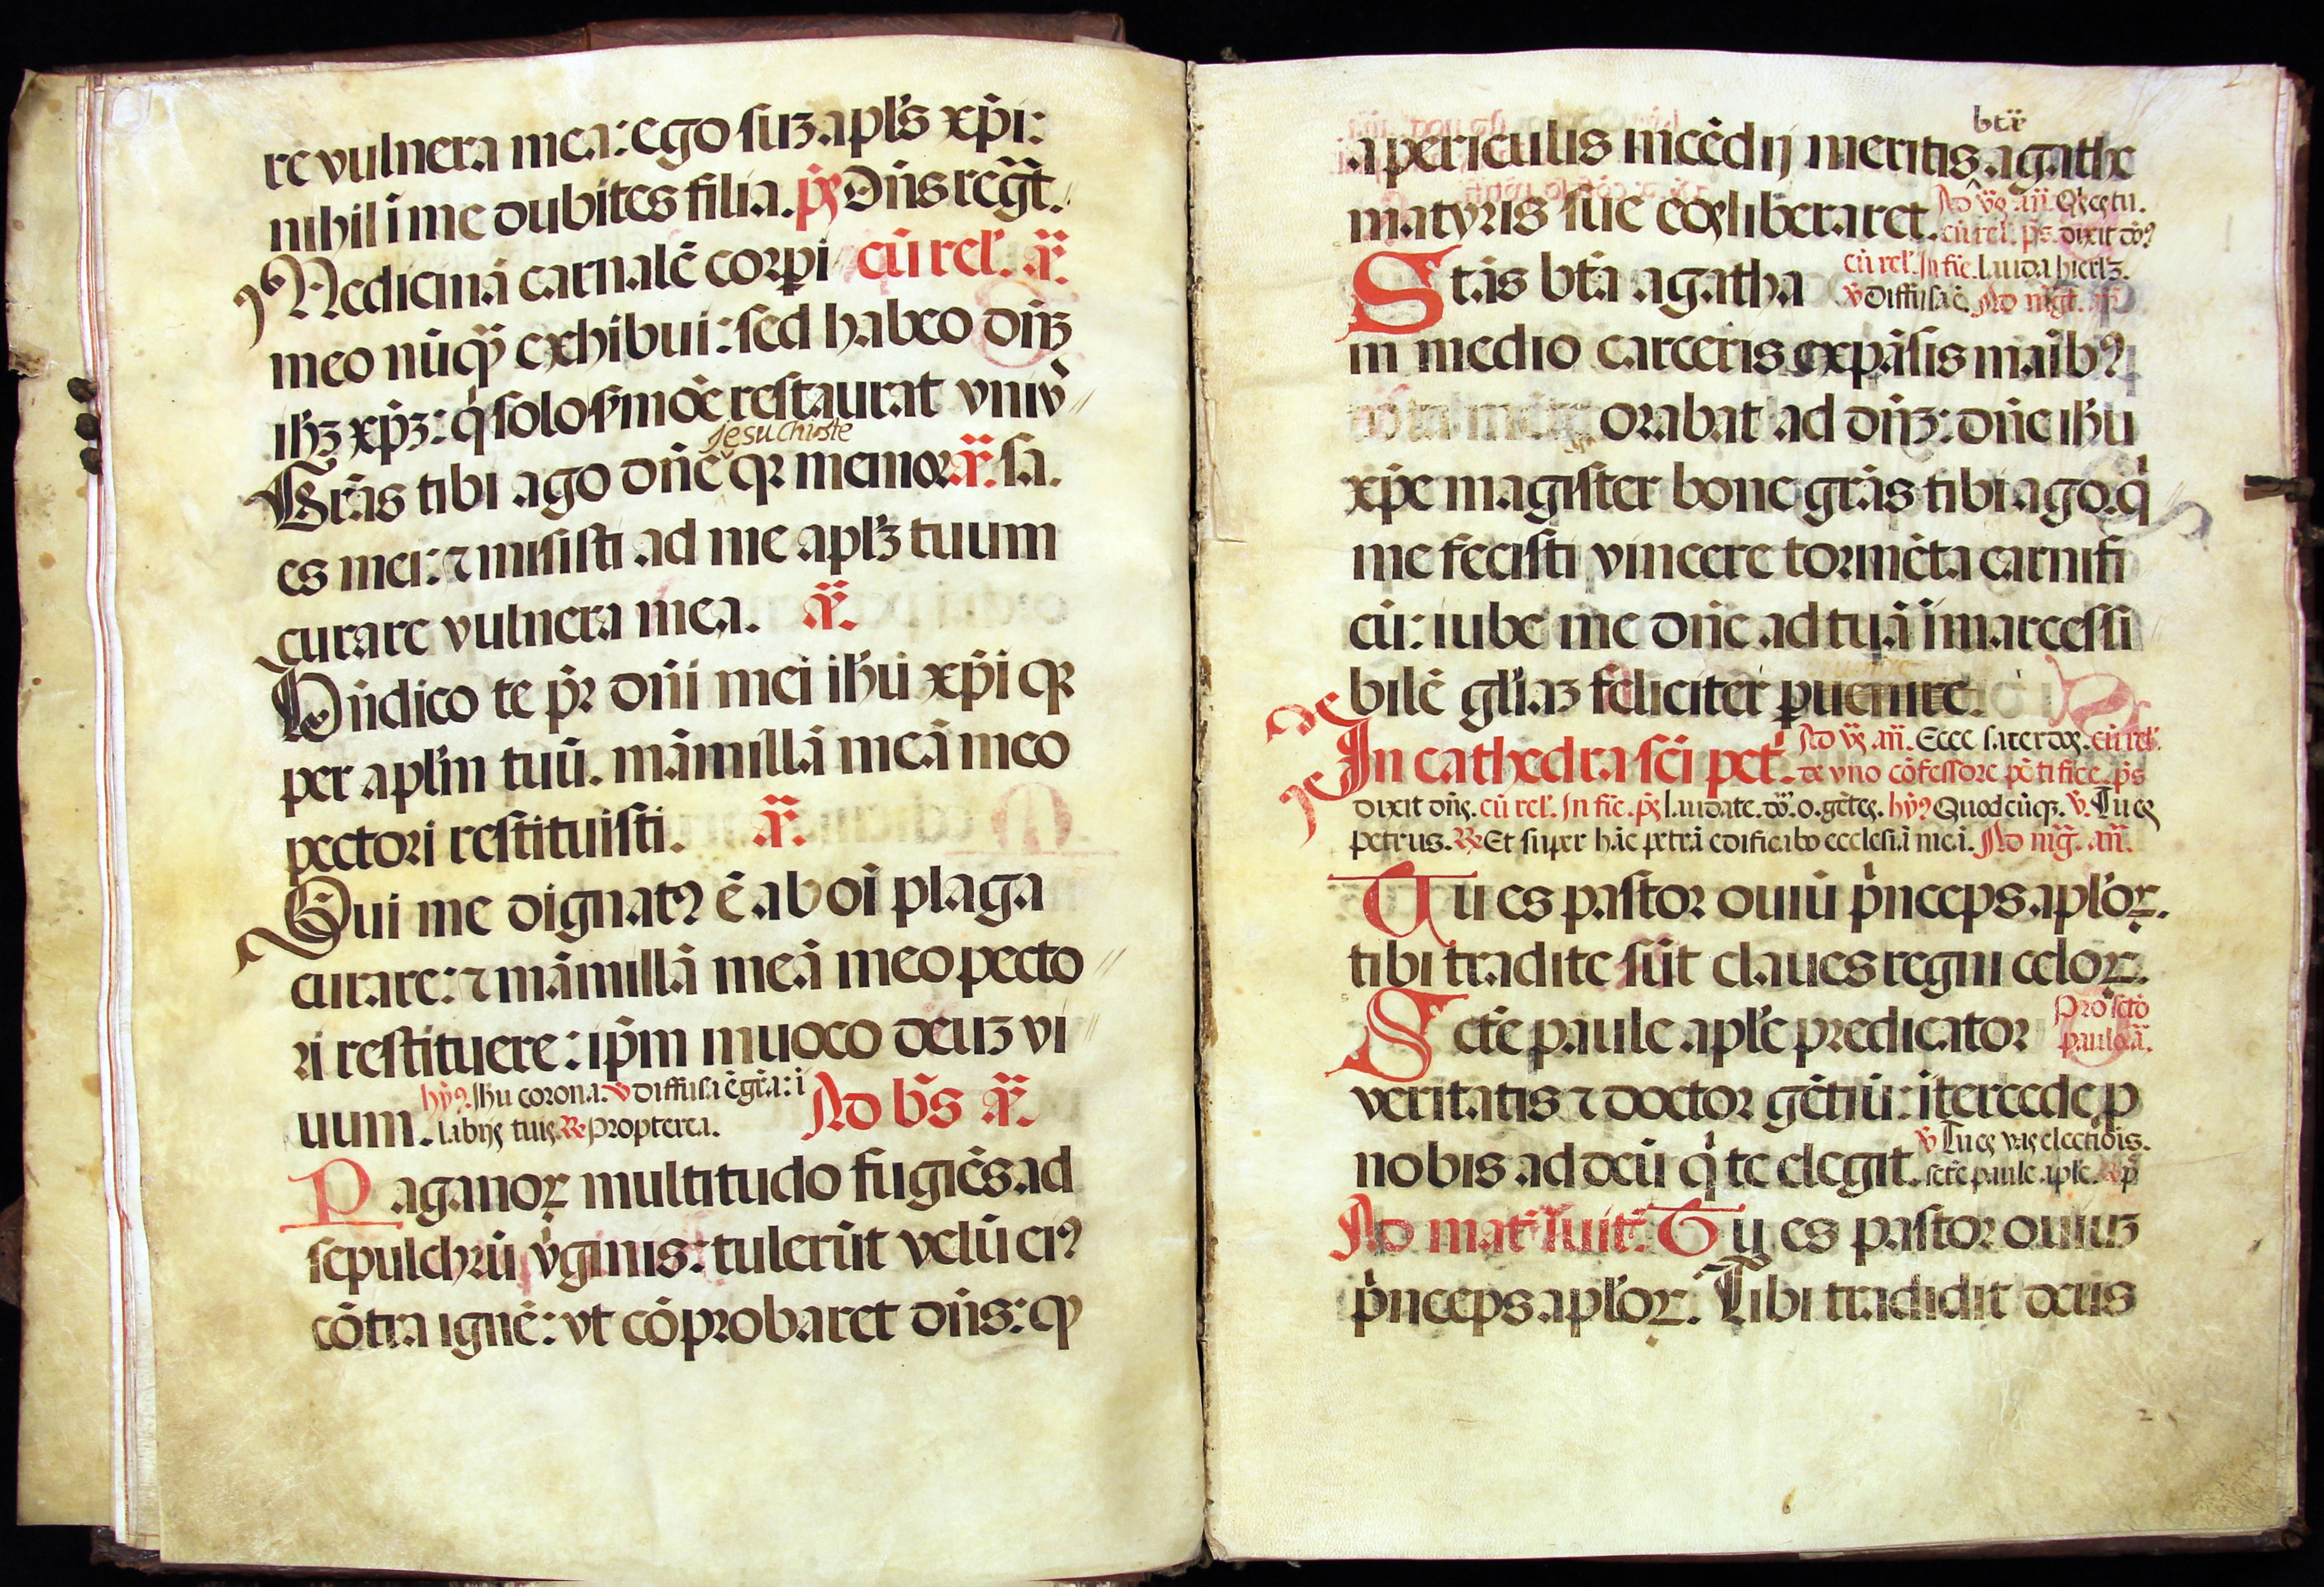 re vulnera mea: ego suꝫ apl's xp̄i:
nihil ī me dubites filia. p̄s Dn̄s reḡt.
Medicinā carnalē corpi cū rel'. añ.
meo nūqꝫ exhibui: sed habeo dn̄ꝫ
ihꝫ xp̄ꝫ: q̇ solo s̄moē restaurat vniv̄
Jesu christe
Grās tibi ago dn̄e qꝛ memor añ. sa.
es mei: ⁊ misisti ad me aplꝫ tuum
curare vulnera mea. añ.
Bn̄dico te p̄r dn̄i mei ihū xp̄i qꝛ
per aplm tuū. māmillā meā meo
pectori restituisti. añ.
Qui me dignatꝰ ē ab oī plaga
curare: ⁊ māmillā meā meo pecto
ri restituere: ip̄m inuoco deuꝫ vi
uum. hȳꝰ. Ihū corona. v̄ diffusa ē gr̄a: ī
labijs tuis ℞ Propterea. Ad b̄s añ.
Paganoꝝ multitudo fugiēs ad
sepulchrū v̇ginis: tulerūt velū eiꝰ
cōtra ignē: vt cōprobaret dn̄s: qꝫ
btē
a periculis incēdij meritis agathe
matyris sue eos liberaret. Ad v̄s añ. Q̄s es tu.
cū rel'. p̄s. dixit dōꝰ
Stās bt̄a agatha cū rel'. In fīe. lauda hierlꝫ.
v̄ Diffusa ē. Ad māgt. añ
in medio carceris expāsis māibꝰ
orabat ad dn̄ꝫ: dn̄e ihū
xp̄e magister bone grās tibi ago. q̇
me fecisti vincere tormēta carnifi
cū: iube me dn̄e ad tuā īmarcessi
bilē gl'iaꝫ feliciter ꝑuenire.
In cathedra scī pet'. Ad v̄s añ. Ecce sacerdos. cū rel'.
de vno cōfessore pōtifice. p̄s
dixit dn̄s. cū rel'. In fīe. p̄s laudate. dō. o. gētes. hȳꝰ Quodcūqꝫ. v̄. Tu es
petrus. ℞ Et super hāc petrā edificabo ecclesiā meā. Ad māg. añ.
Tu es pastor ouiū p̄nceps aploꝝ.
tibi tradite sūt claues regni celoꝝ.
Scte paule aple predicator Pro sctō
paulo. ā.
veritatis ⁊ doctor gētiū: ītercede ꝓ
nobis ad deū q̇ te elegit. v̄ Tu es vas electiōis.
scte paule aple. ℞ p
Ad mat' inuit. Tu es pastor ouiuꝫ
p̄nceps aploꝝ. Tibi tradidit deus